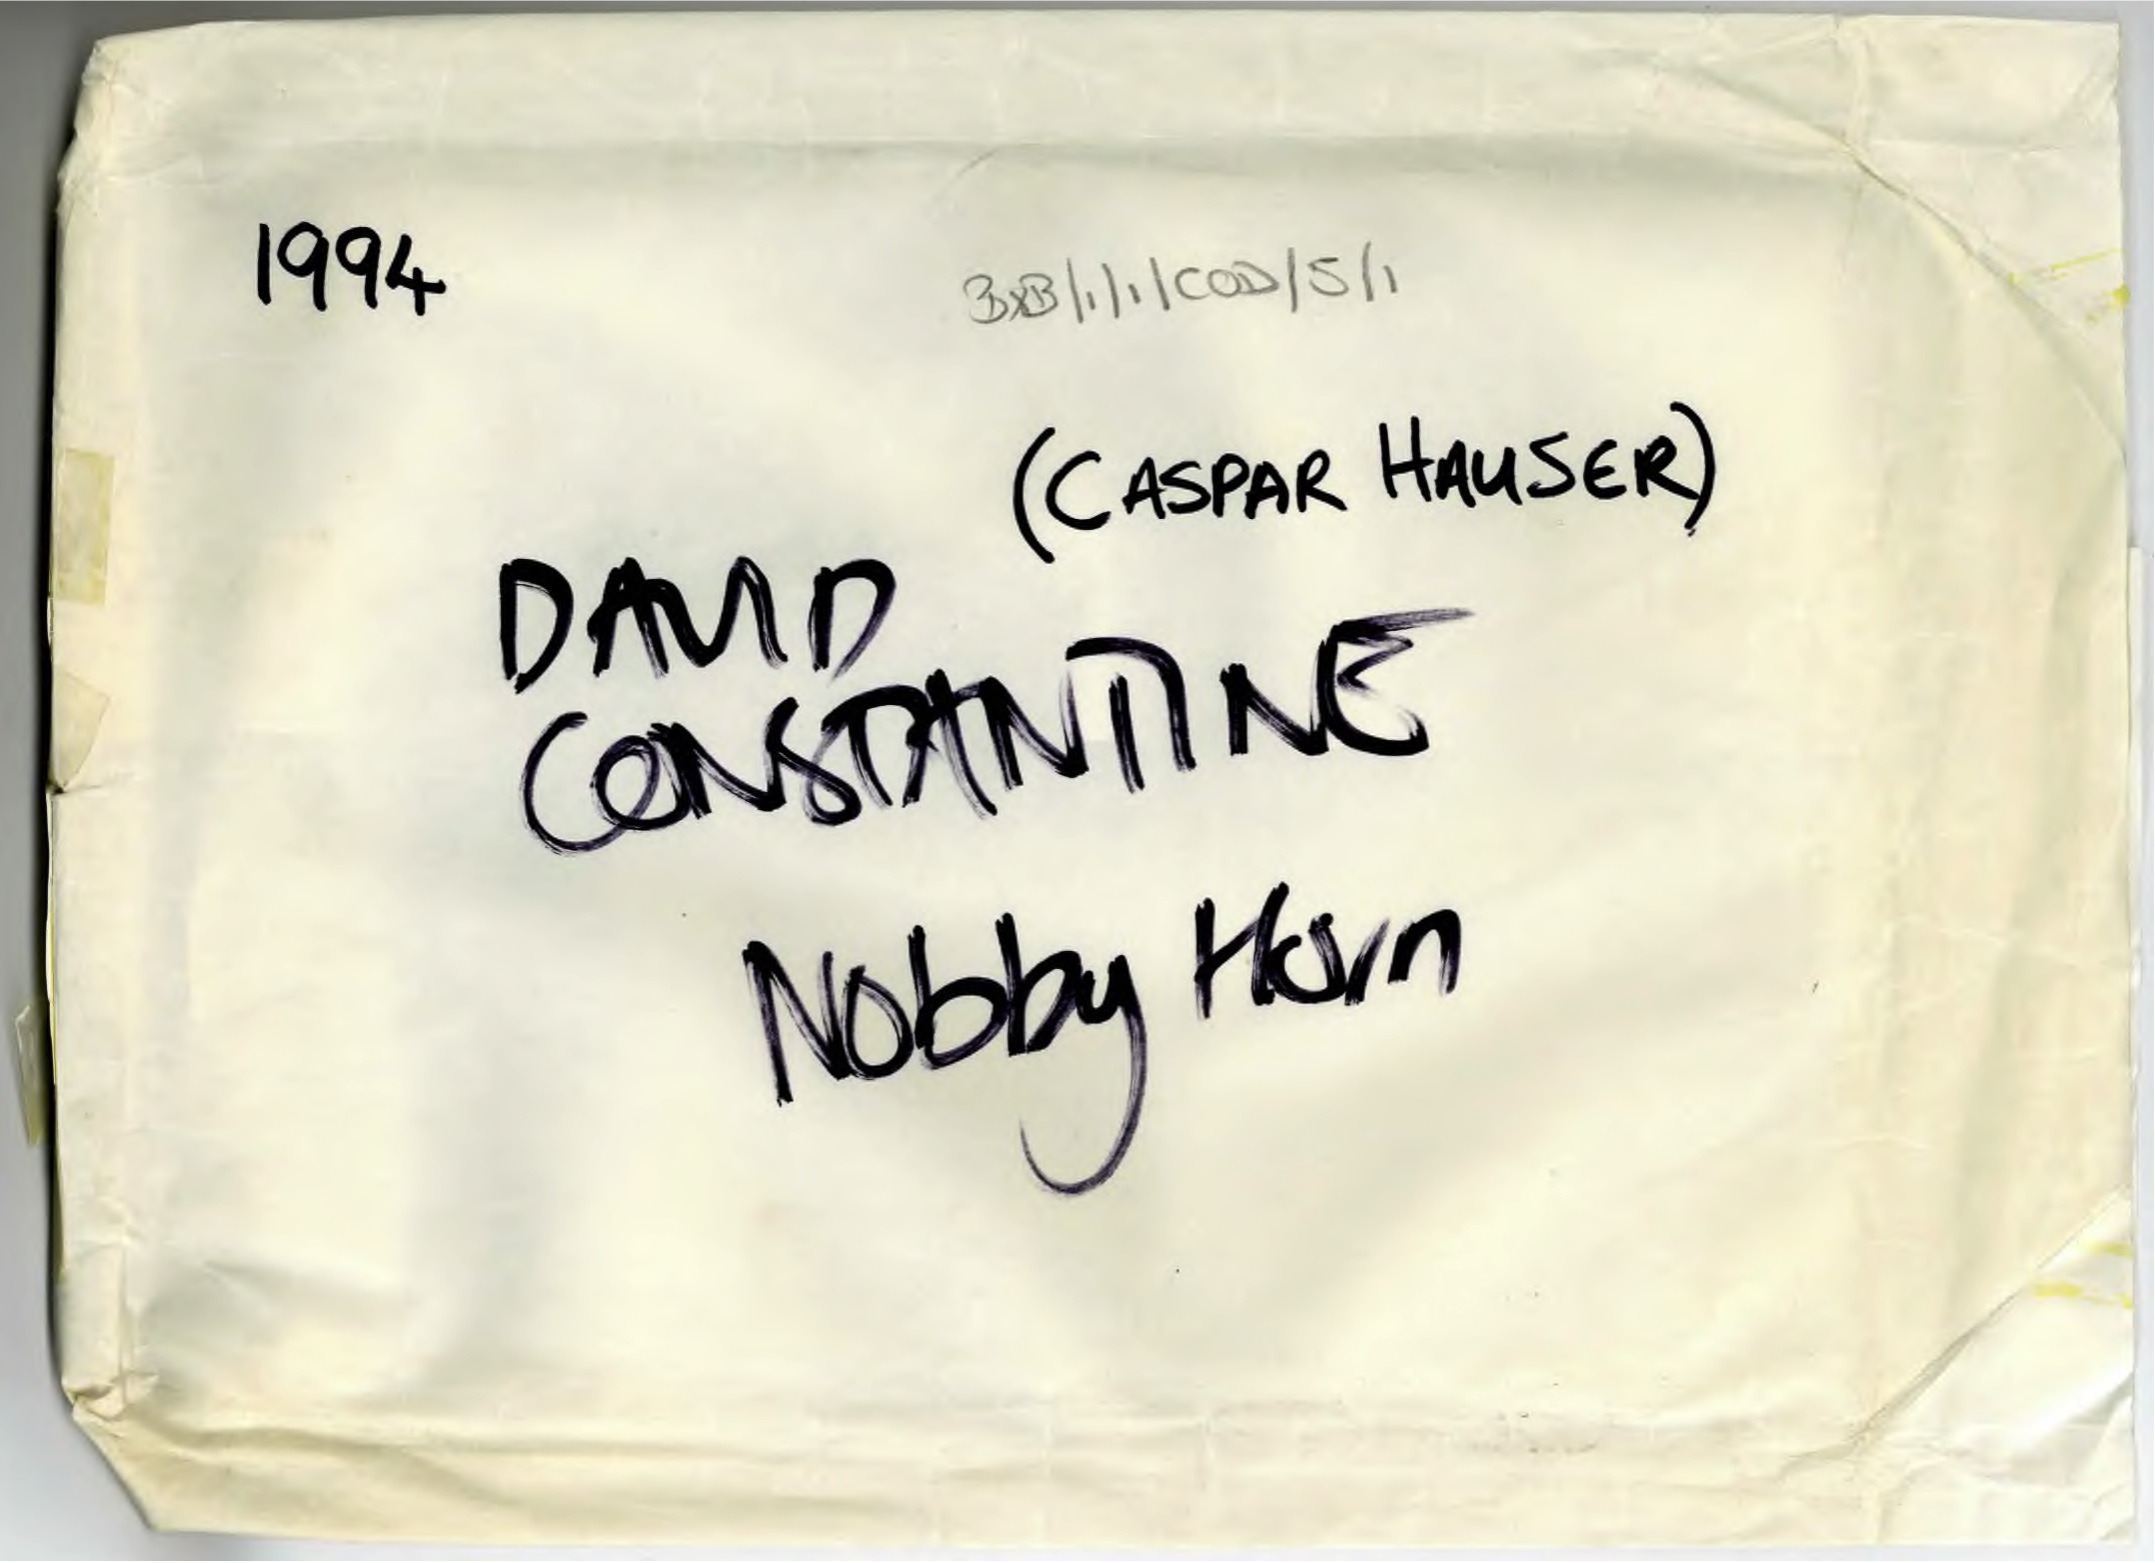 1994
BXB/1/1/COD/5/1
(CASPAR HAUSER)
DAVID
CONSTANTINE
Nobby Horn